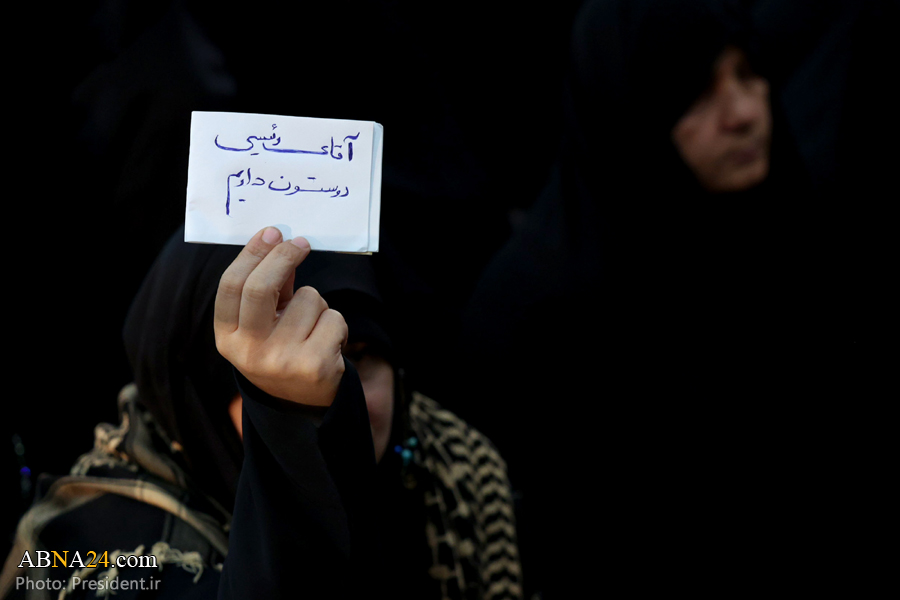 آقای رئیسی
دوستون داریم
ABNA24.com
Photo: President.ir